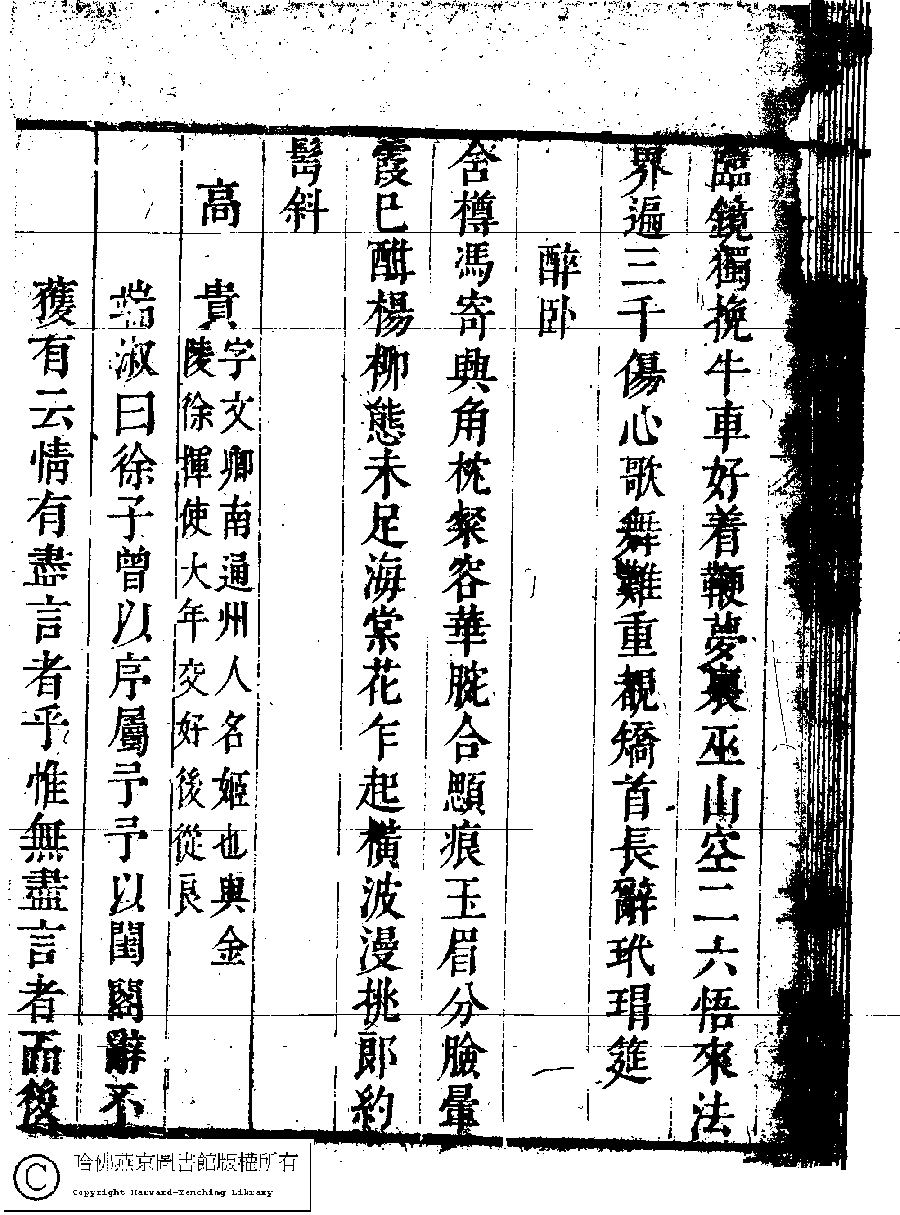 臨鏡獨挽牛車好着鞭夢裏巫山空二六悟來法
界遍三千傷心歌舞難重覩矯首長辭玳瑁筵
醉卧
含樽馮寄興角枕粲容華腕合顋痕玉眉分臉暈
霞已酣楊柳態未足海棠花乍起橫波漫挑郎約
髩斜
高貴字文卿南通州人名姬也與金
陵徐揮使大年交好後從良
端淑曰徐子曾以序屬予予以閨閣辭不
獲有云情有盡言者乎惟無盡言者而後
哈佛燕京圖書館版權所有
Copyright Harvard-Yenching Library